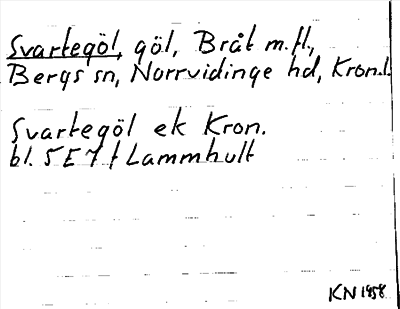 Svartegöl, göl, Bråt m.fl.,
Bergs sn, Norrvidinge hd, Kron.l.
Svartegöl ek Kron.
bl. 5E7 f Lammhult
KN 1958